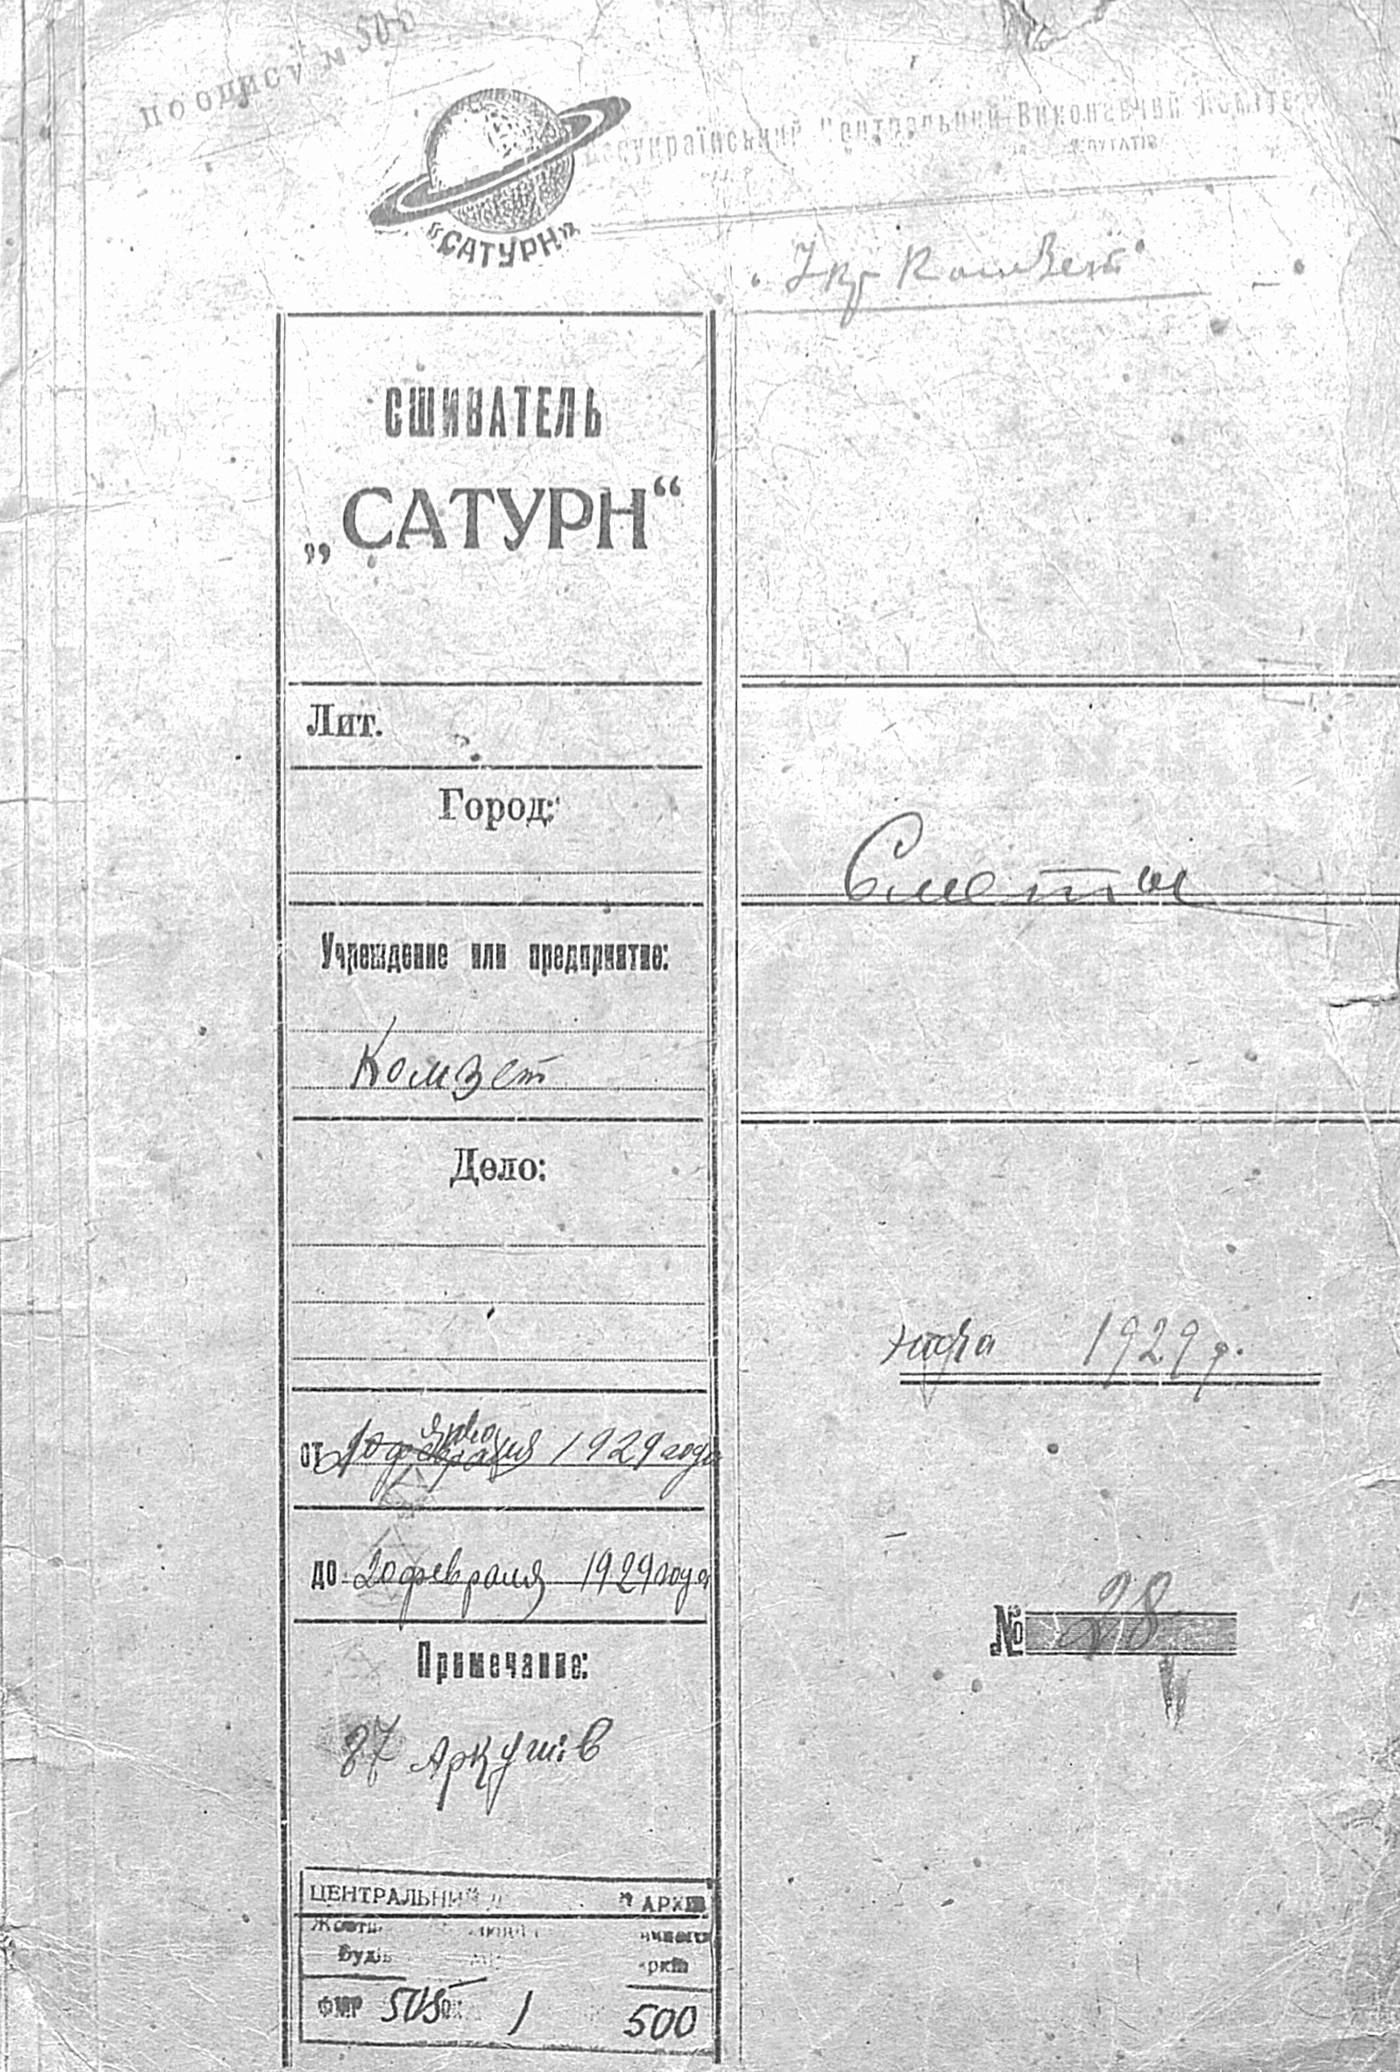 по описи № 505
Всеукраїнський Центральний Виконавчий Комітет
"САТУРН"
"УкрКомзет"
СШИВАТЕЛЬ
„САТУРН“
Лит.
Город:
Сметы
Учреждение или предприятие:
Комзет
Дело:
1929 р.
от 10 января 1929 года
до 20 февраля 1929 года
№ 28
Примечание:
87 Аркушів
ЦЕНТРАЛЬНИЙ АРХІВ
505 1 500